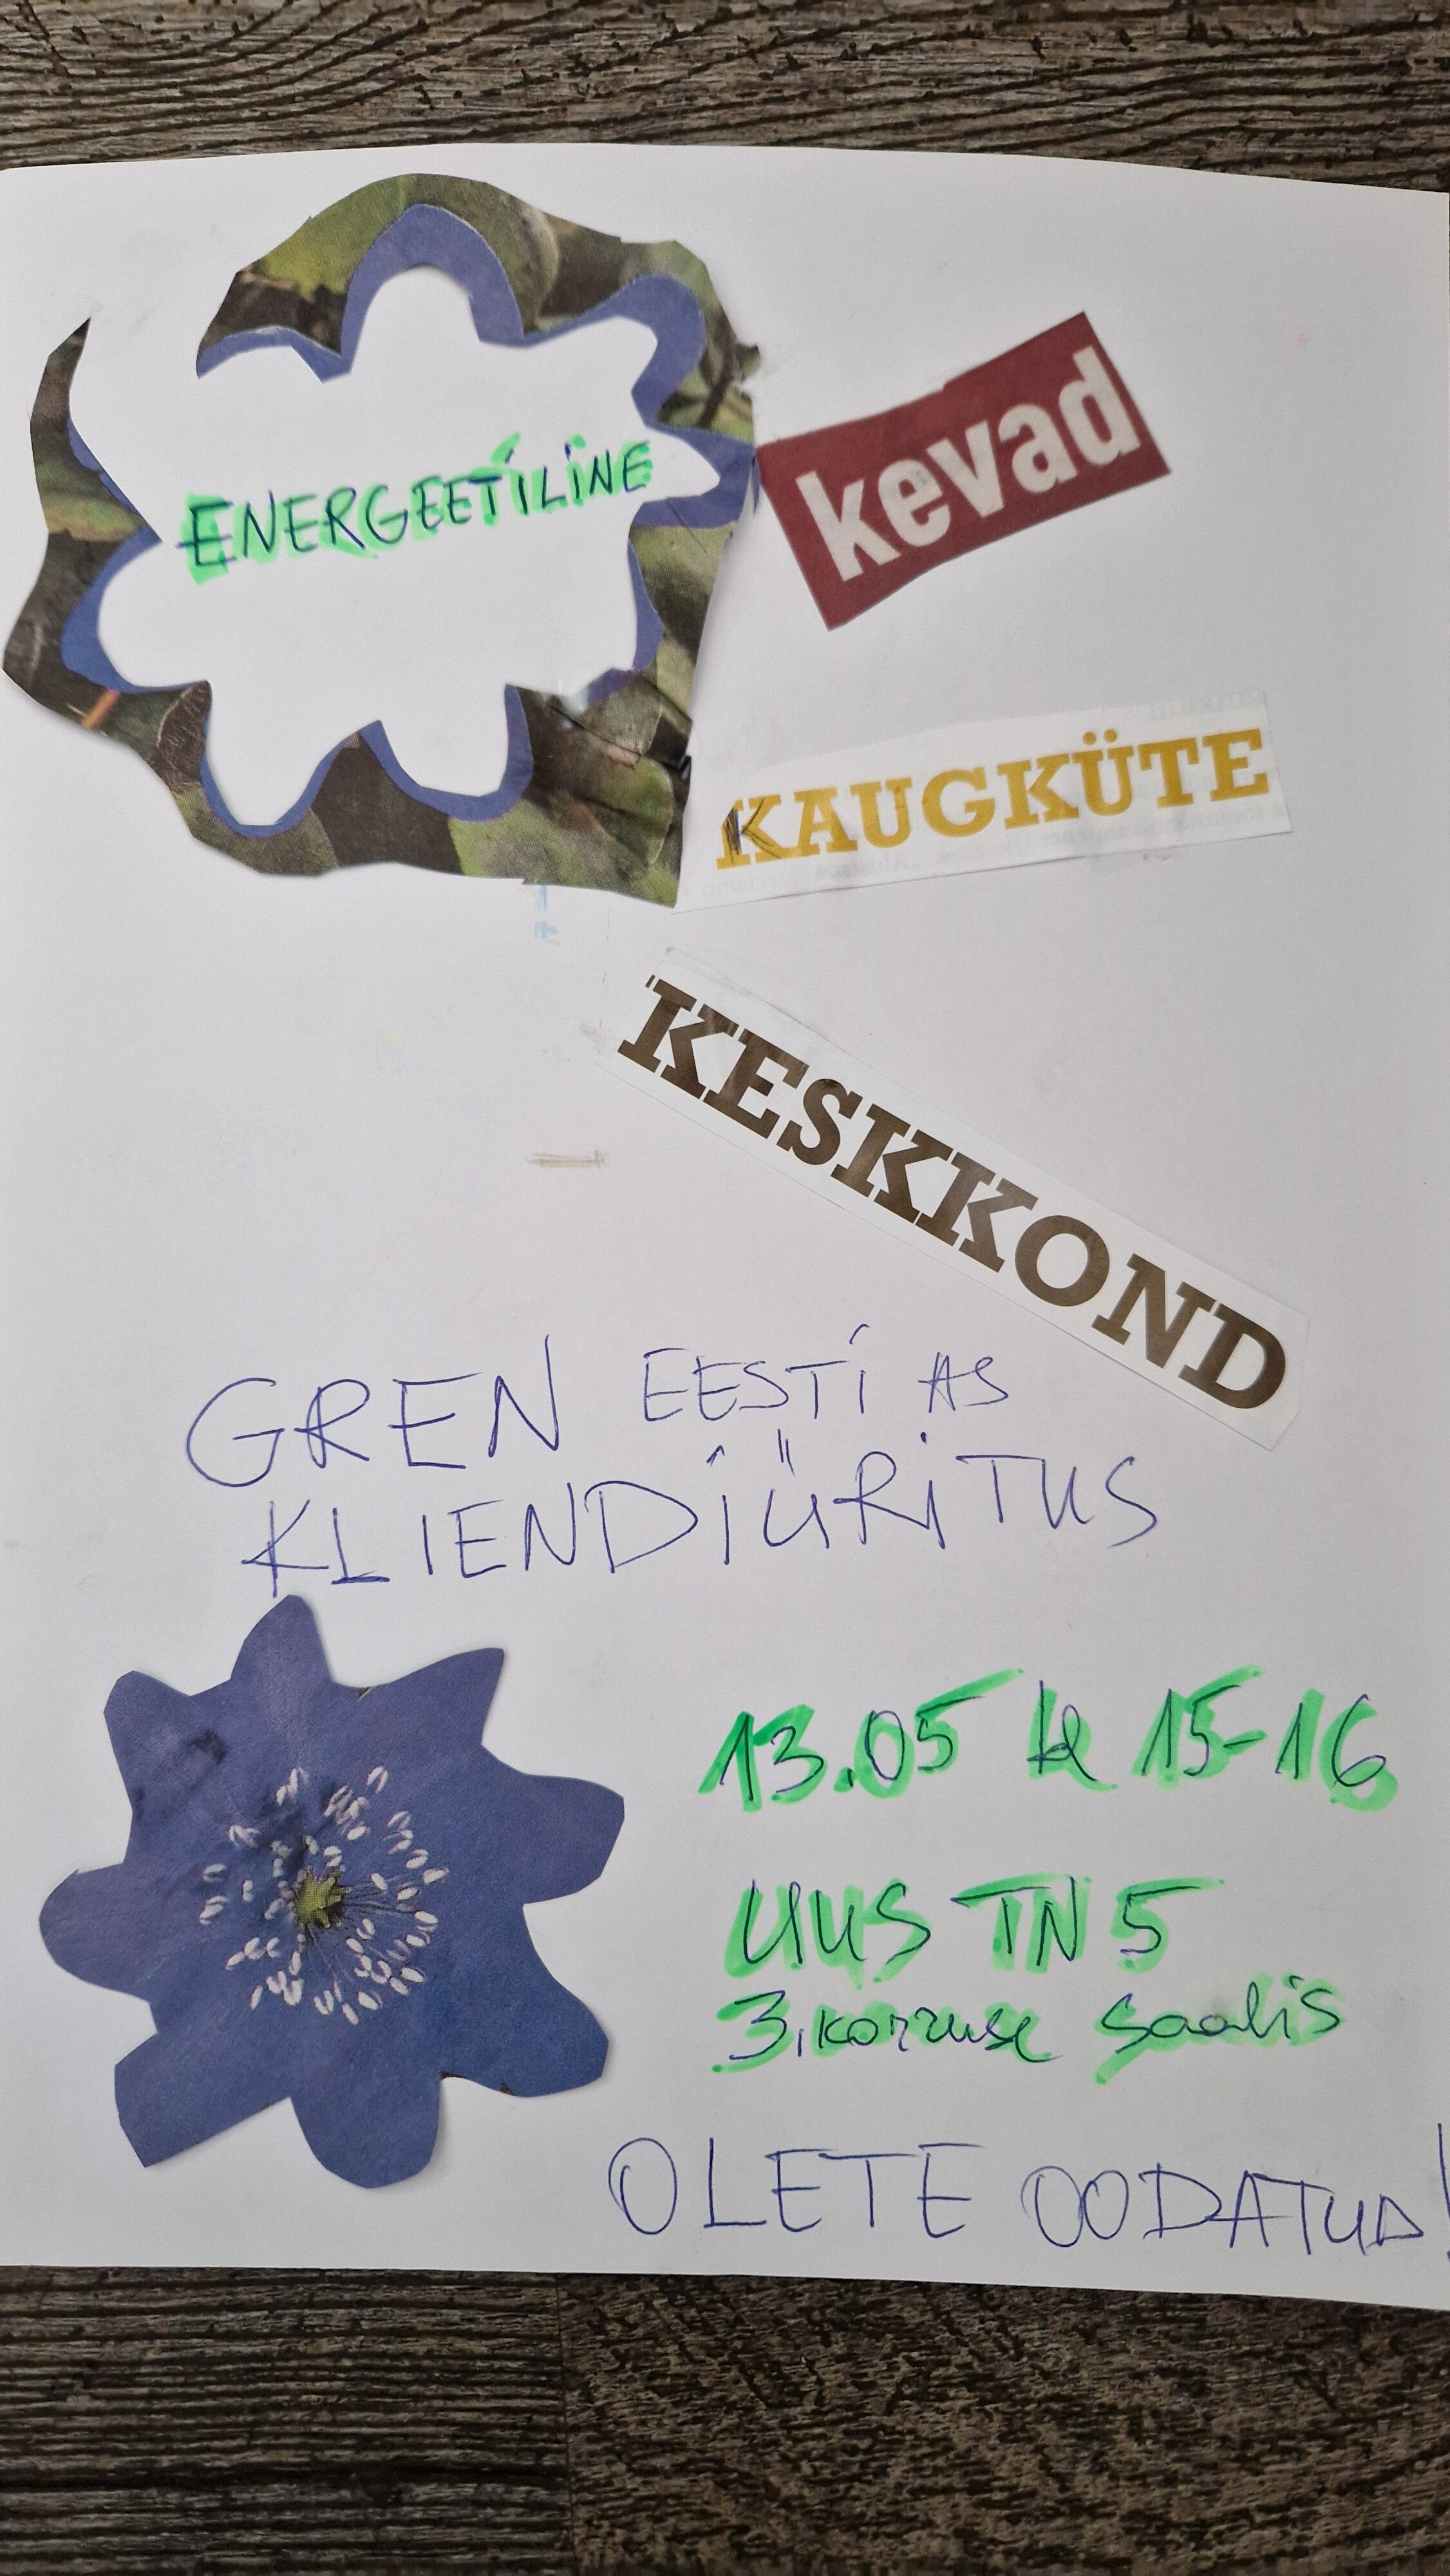 ENERGEETILINE
kevad
KAUGKÜTE
KESKKOND
GREN EESTI AS
KLIENDIÜRITUS
13.05 kl 15-16
UUS TN 5
3. korruse saalis
OLETE OODATUD!